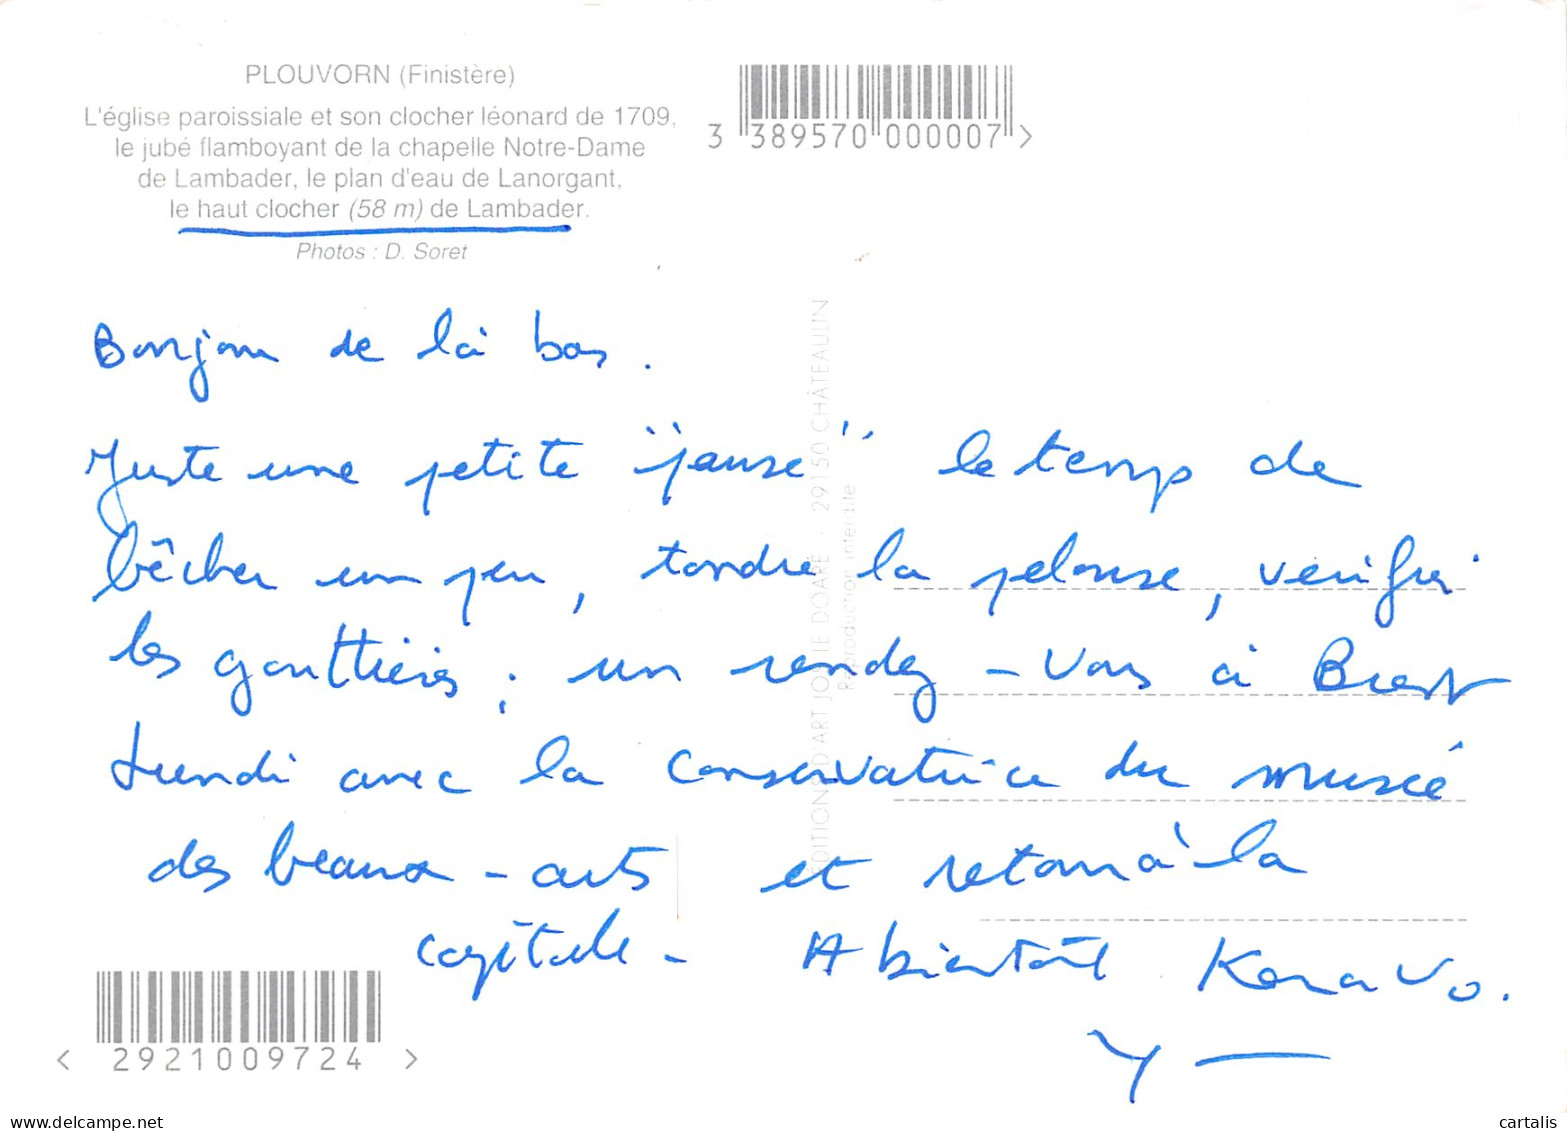 PLOUVORN (Finistère)
L'église paroissiale et son clocher léonard de 1709,
le jubé flamboyant de la chapelle Notre-Dame
de Lambader, le plan d'eau de Lanorgant,
le haut clocher (58 m) de Lambader.
Photos : D. Soret
3 389570 000007 >
Bonjour de là bas.
Juste une petite "pause" le temps de
bêcher un peu, tondre la pelouse, vérifier
les gouttières ; un rendez-vous à Brest
Lundi avec la conservatrice du musée
des beaux-arts et retour à la
capitale - A bientôt Kenavo.
Y
EDITIONS D'ART JOS LE DOARÉ - 29150 CHÂTEAULIN
Reproduction interdite
< 2921009724 >
www.delcampe.net
cartalis